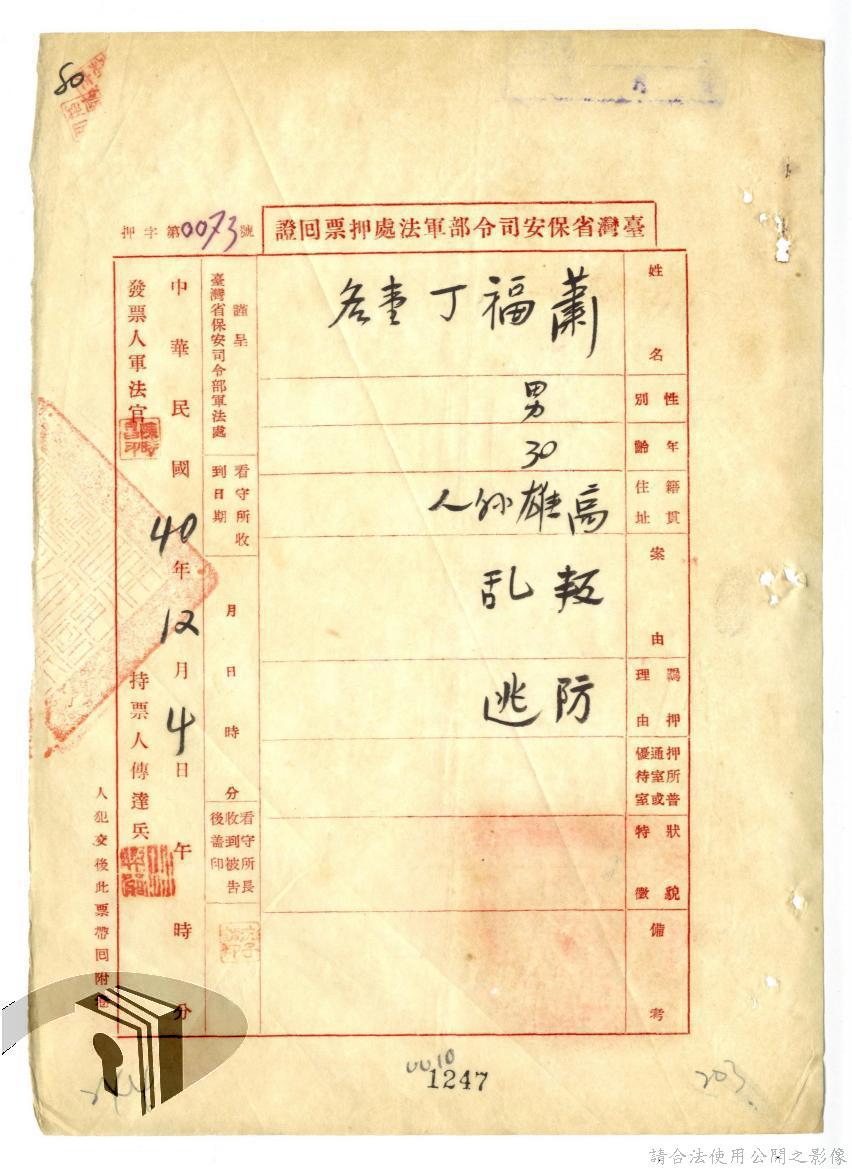 80
臺灣省保安司令部軍法處押票回證
押字第0073號
姓名
蕭福丁
性別
男
年齡
30
籍貫住址
高雄外人
案由
叛乱
羈押理由
防逃
押所普通室或優待室
狀貌特徵
備考
謹呈
臺灣省保安司令部軍法處
看守所收到日期
月日時分
看守所長收到被告後蓋印
中華民國40年12月4日午時分
發票人軍法官
持票人傳達兵
人犯交後此票帶回附
0010
1247
203
請合法使用公開之影像